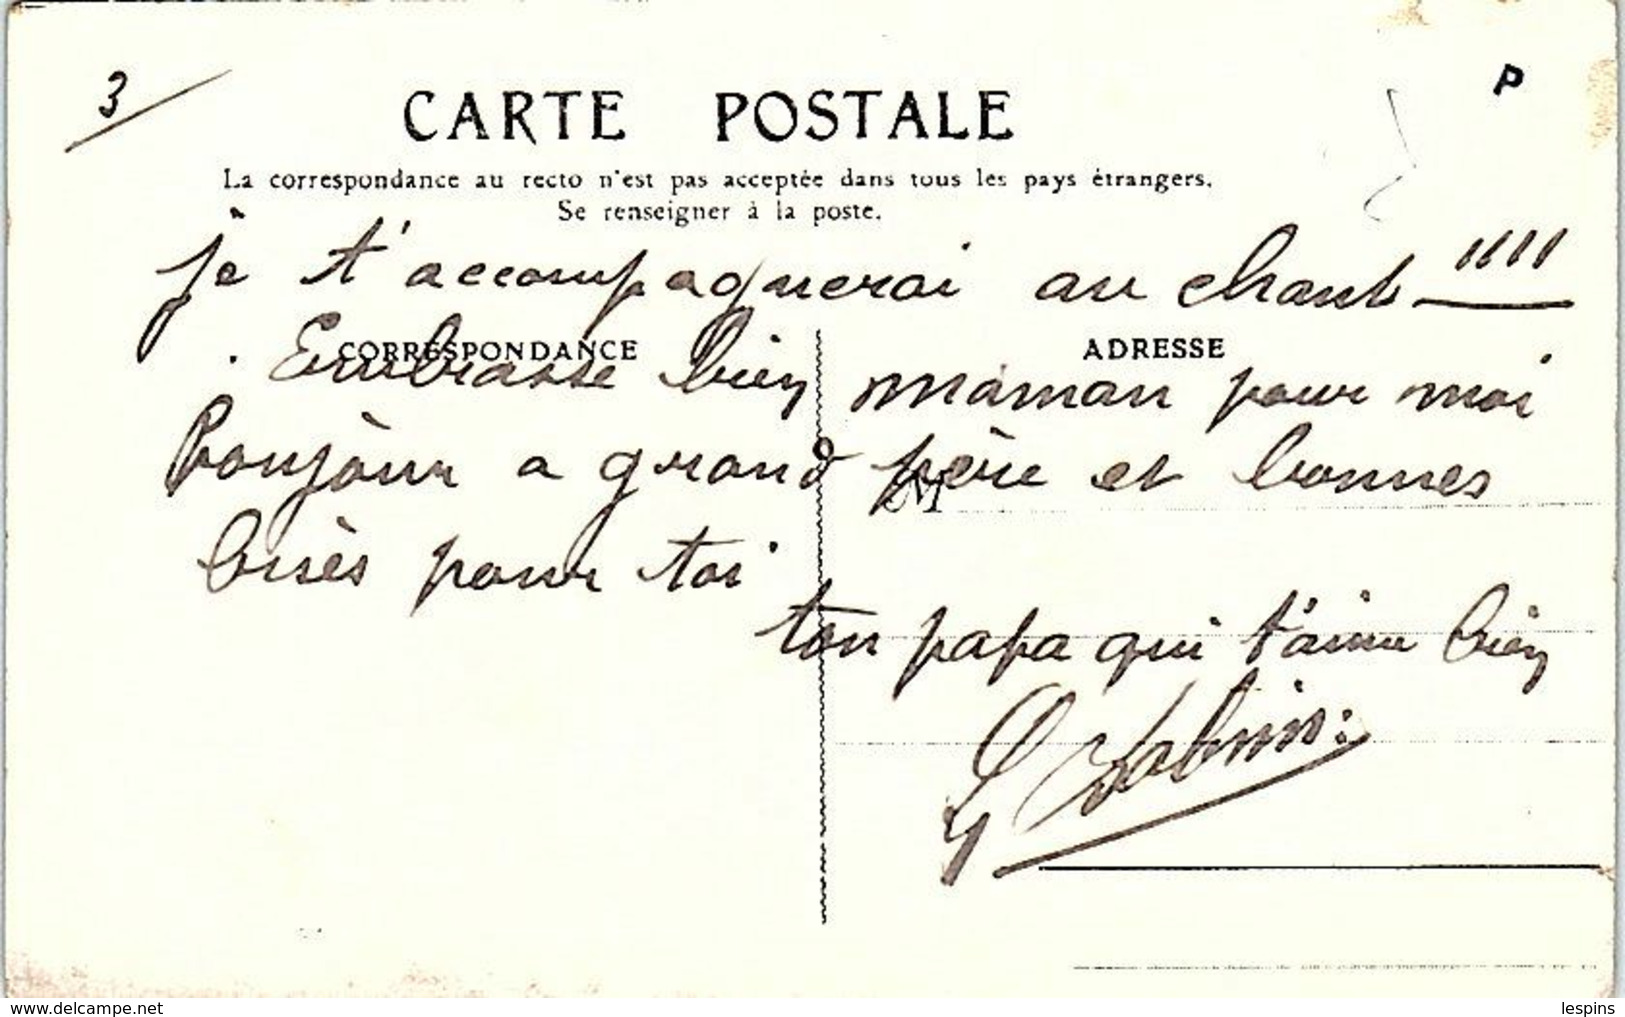 3
P
CARTE POSTALE
La correspondance au recto n'est pas acceptée dans tous les pays étrangers.
Se renseigner à la poste.
je t'accompagnerai au chant !!!!
CORRESPONDANCE
ADRESSE
Embrasse bien maman pour moi
Bonjour a grand père et bonnes
M
bises pour toi
ton papa qui t'aime bien
www.delcampe.net
lespins